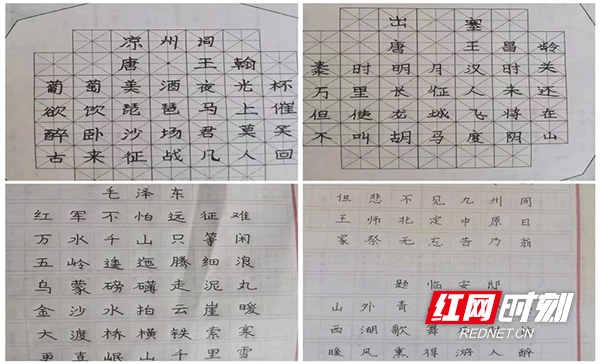 凉州词
唐·王翰
葡萄美酒夜光杯
欲饮琵琶马上催
醉卧沙场君莫笑
古来征战几人回
出塞
唐 王昌龄
秦时明月汉时关
万里长征人未还
但使龙城飞将在
不叫胡马度阴山
毛泽东
红军不怕远征难
万水千山只等闲
五岭逶迤腾细浪
乌蒙磅礴走泥丸
金沙水拍云崖暖
大渡桥横铁索寒
更喜岷山千里雪
但悲不见九州同
王师北定中原日
家祭无忘告乃翁
题临安邸
山外青
西湖歌舞
暖风熏得游人醉
红网时刻
REDNET.CN